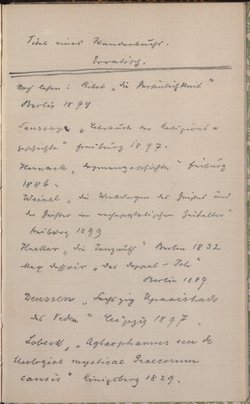 Titel eines Wunderbuchs.
Erratisch.
Noch lesen: Rubel „die Persönlichkeit"
Berlin 1894
Saussaye „Lehrbuch der Religions-
geschichte" Freiburg 1897.
Harnack „Dogmengeschichte" Freiburg
1886.
Weinel „die Wirkungen des Geistes und
der Geister im nachapostolischen Zeitalter"
Freiburg 1899
Hecker „die Tanzwuth" Berlin 1832
Max Dessoir „das Doppel-Ich"
Berlin 1889
Deussen „Sechzig Upanishads
des Veda" Leipzig 1897.
Lobeck, „Aglaophamus seu de
theologiae mysticae Graecorum
causis" Königsberg 1829.